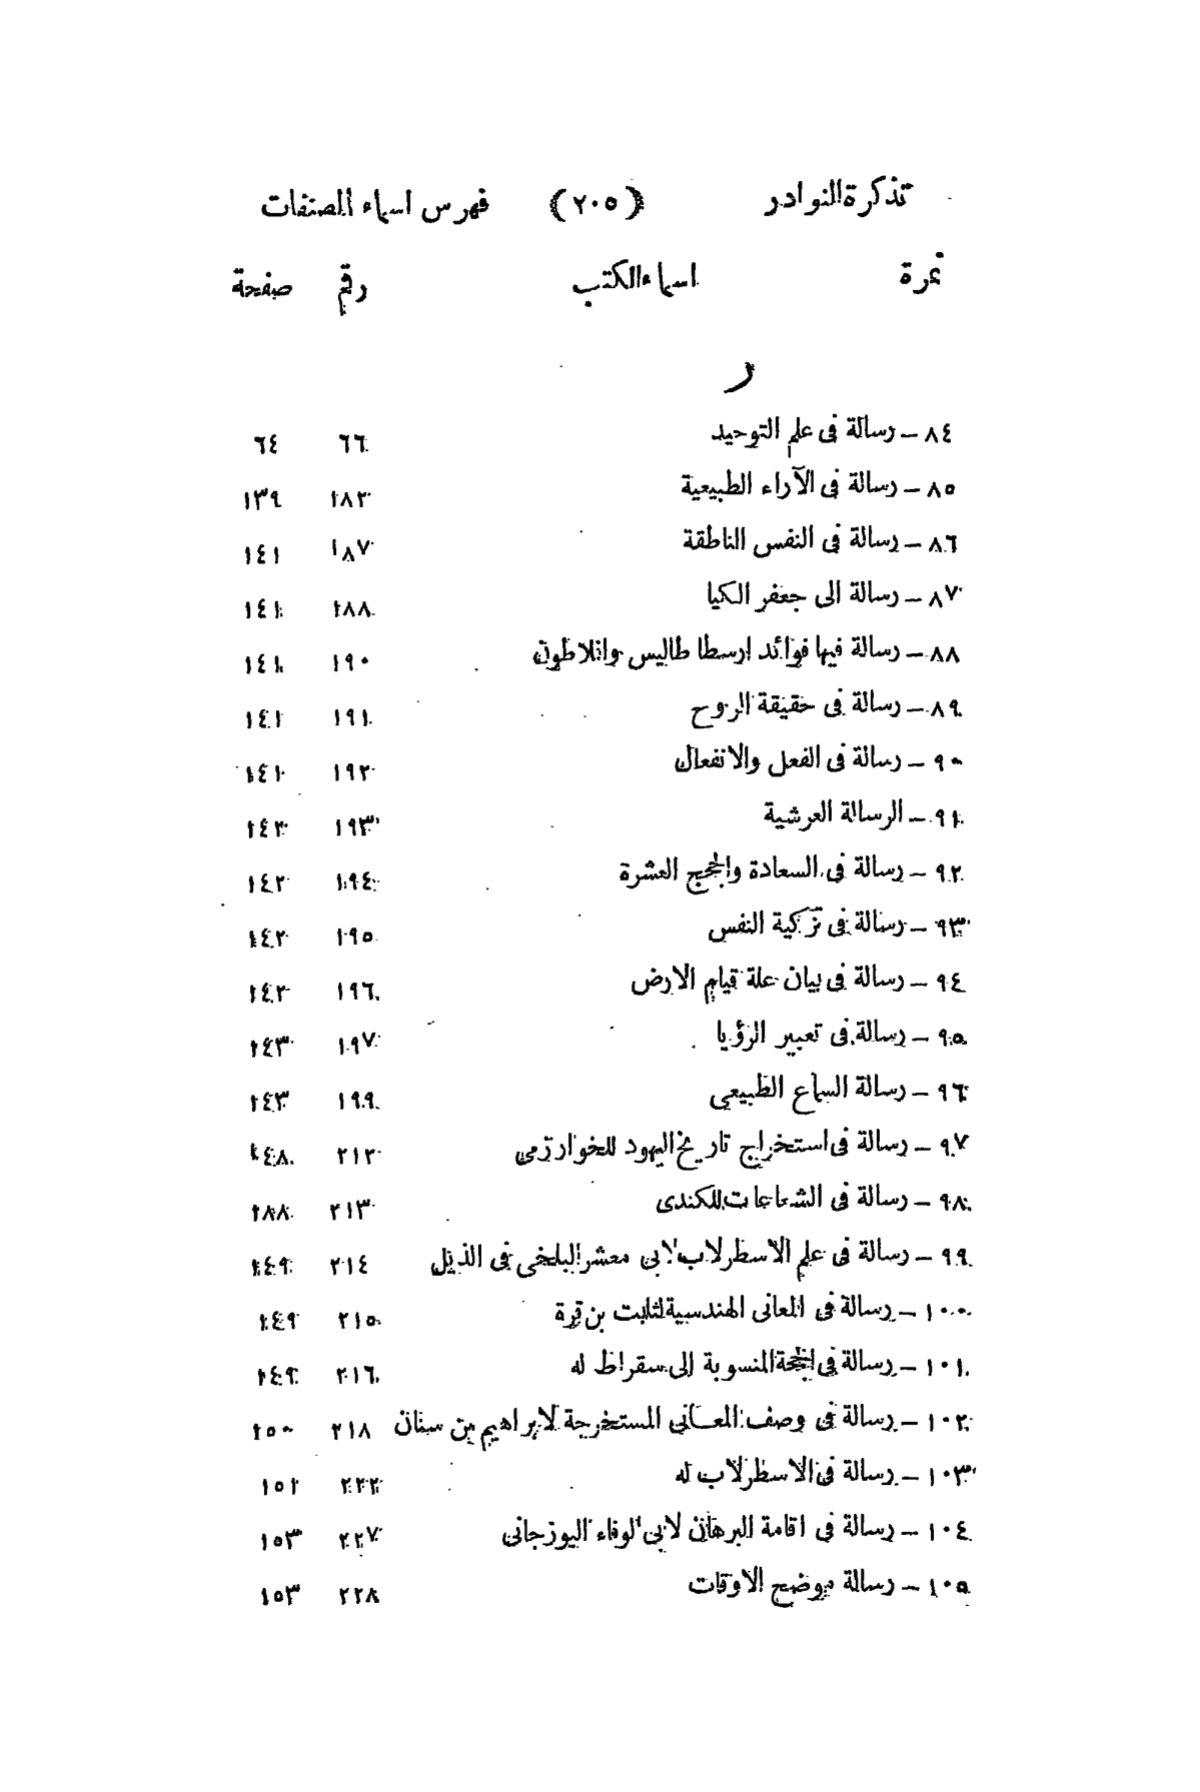 تذكرة النوادر (٢٠٥) فهرس اسماء المصنفات
نمرة اسماء الكتب رقم صفحة
ر
٨٤ – رسالة فى علم التوحيد ٦٦ ٦٤
٨٥ – رسالة فى الآراء الطبيعية ١٨٢ ١٣٩
٨٦ – رسالة فى النفس الناطقة ١٨٧ ١٤١
٨٧ – رسالة الى جعفر الكيا ١٨٨ ١٤١
٨٨ – رسالة فيها فوائد ارسطا طاليس وافلاطون ١٩٠ ١٤١
٨٩ – رسالة فى حقيقة الروح ١٩١ ١٤١
٩٠ – رسالة فى الفعل والانفعال ١٩٢ ١٤١
٩١ – الرسالة العرشية ١٩٣ ١٤٢
٩٢ – رسالة فى السعادة والحجج العشرة ١٩٤ ١٤٢
٩٣ – رسالة فى تزكية النفس ١٩٥ ١٤٢
٩٤ – رسالة فى بيان علة قيام الارض ١٩٦ ١٤٢
٩٥ – رسالة فى تعبير الرؤيا ١٩٧ ١٤٣
٩٦ – رسالة السماع الطبيعى ١٩٩ ١٤٣
٩٧ – رسالة فى استخراج تاريخ اليهود للخوارزمى ٢١٢ ١٤٨
٩٨ – رسالة فى الشعاعات للكندى ٢١٣ ١٨٨
٩٩ – رسالة فى علم الاسطرلاب لابى معشر البلخى فى الذيل ٢١٤ ١٤٩
١٠٠ – رسالة فى المعانى الهندسية لثابت بن قرة ٢١٥ ١٤٩
١٠١ – رسالة فى الحجة المنسوبة الى سقراط له ٢١٦ ١٤٩
١٠٢ – رسالة فى وصف المعانى المستخرجة لابراهيم بن سنان ٢١٨ ١٥٠
١٠٣ – رسالة فى الاسطرلاب له ٢٢٢ ١٥١
١٠٤ – رسالة فى اقامة البرهان لابى الوفاء البوزجانى ٢٢٧ ١٥٣
١٠٥ – رسالة يوضح الاوقات ٢٢٨ ١٥٣